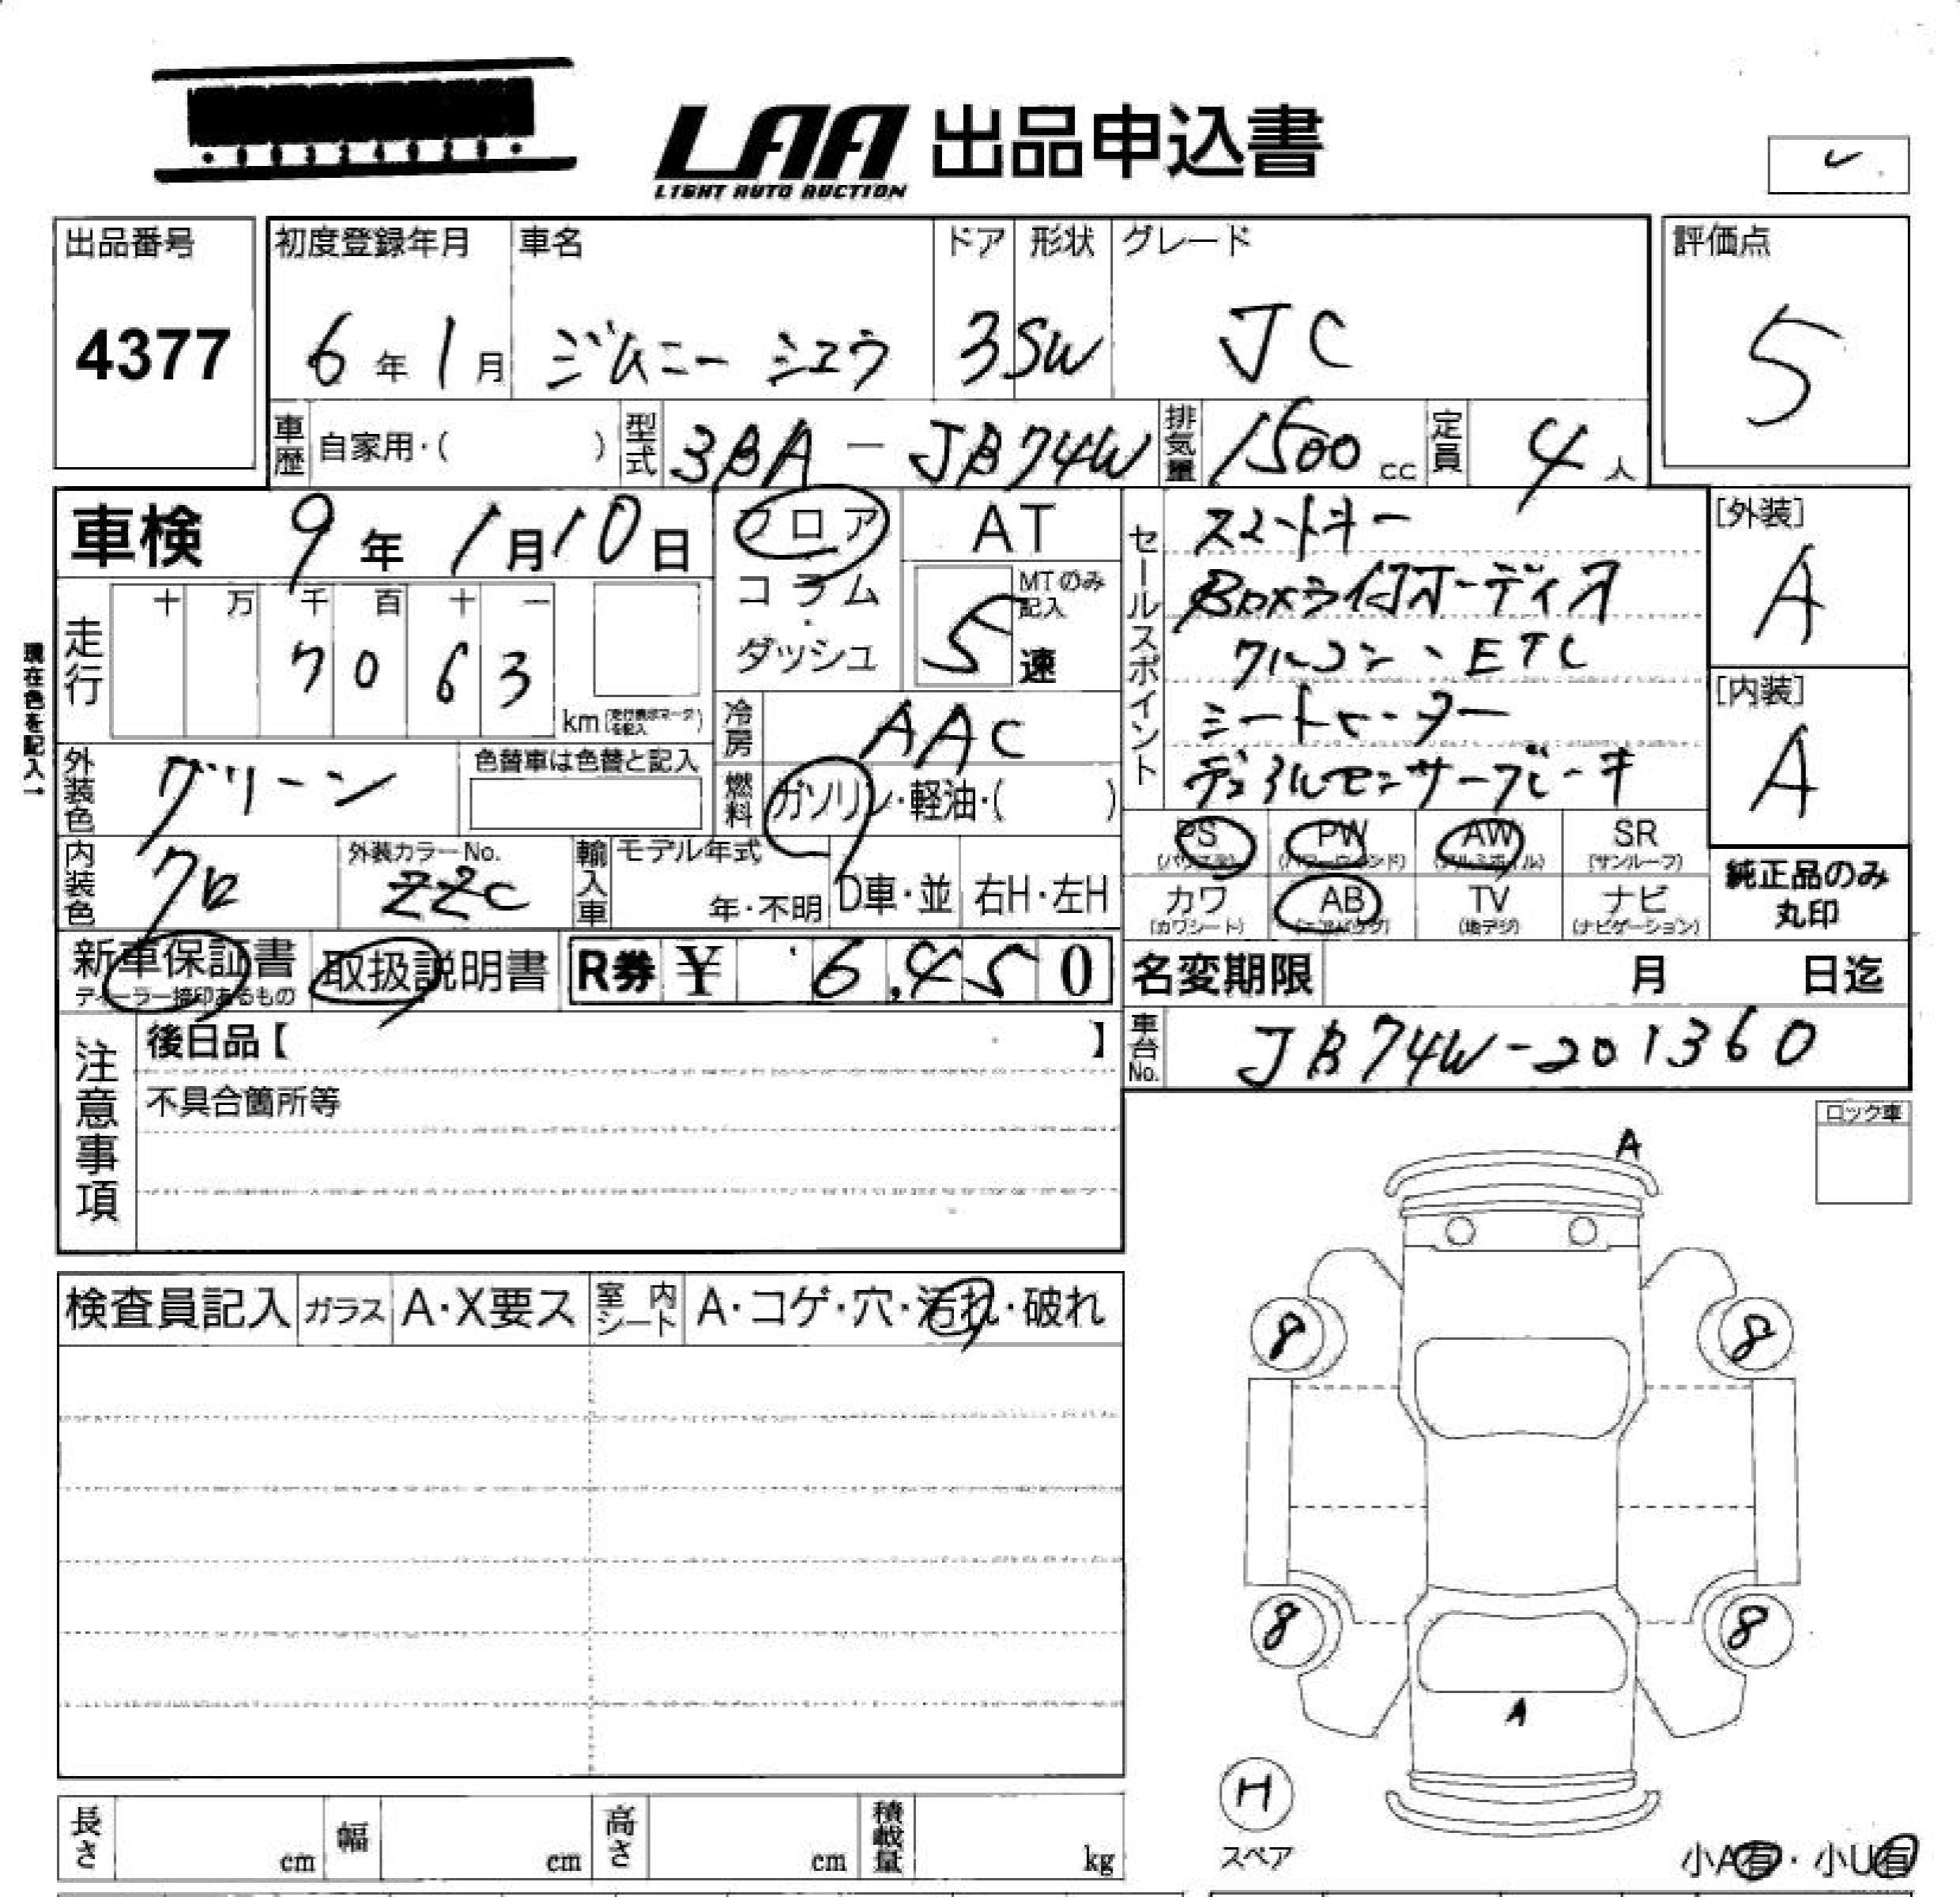 LAA 出品申込書
LIGHT AUTO AUCTION
出品番号
4377
初度登録年月
6年1月
車名
ジムニー シエラ
ドア
3
形状
SW
グレード
JC
評価点
5
車歴 自家用・( )
型式 3BA-JB74W
排気量 1500cc
定員 4人
車検 9年1月10日
フロア
コラム
・
ダッシュ
AT
5速
MTのみ記入
セールスポイント
スマートキー
BOXライ付オーディオ
クルコン、ETC
シートヒーター
デュアルセンサーブレーキ
[外装]
A
[内装]
A
純正品のみ丸印
現在色を記入→
走行
十 万 千 百 十 一
7 0 6 3
km
外装色 グリーン
色替車は色替と記入
冷房 AAC
燃料 ガソリン・軽油・( )
内装色 クロ
外装カラーNo.
ZZC
輸入車
モデル年式
年・不明
D車・並
右H・左H
PS (パワステ)
PW (パワーウインド)
AW (アルミホイル)
SR (サンルーフ)
カワ (カワシート)
AB (エアバック)
TV (地デジ)
ナビ (ナビゲーション)
新車保証書
ディーラー捺印あるもの
取扱説明書
R券 ¥ 6,450
名変期限 月 日迄
車台No. JB74W-201360
注意事項
後日品【 】
不具合箇所等
ロック車
検査員記入
ガラス A・X要ス
室内シート A・コゲ・穴・汚れ・破れ
A
8 8
8 8
A
H
スペア
小A有・小U有
長さ cm
幅 cm
高さ cm
積載量 kg